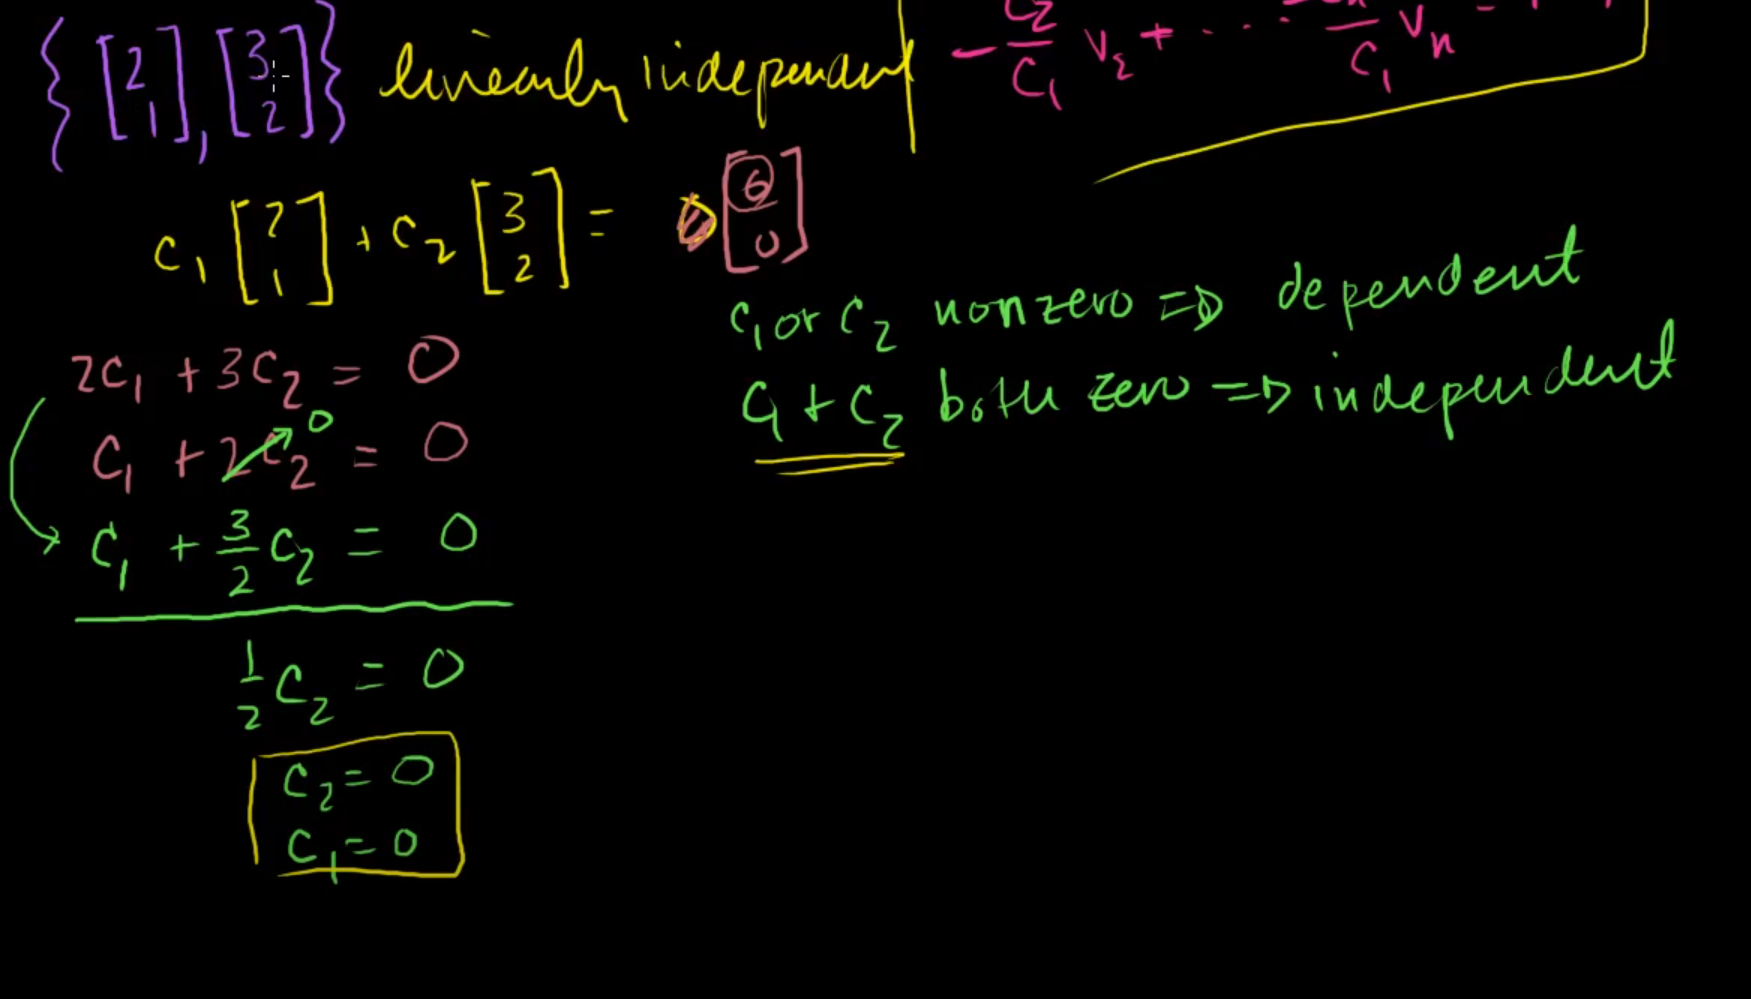 { [2 1], [3 2] } linearly independent
- C2/C1 V2 + ... - /C1 Vn
C1 [2 1] + C2 [3 2] = [0 0]
C1 or C2 nonzero => dependent
C1 + C2 both zero => independent
2C1 + 3C2 = 0
C1 + 2C2 = 0
0
C1 + 3/2 C2 = 0
1/2 C2 = 0
C2 = 0
C1 = 0